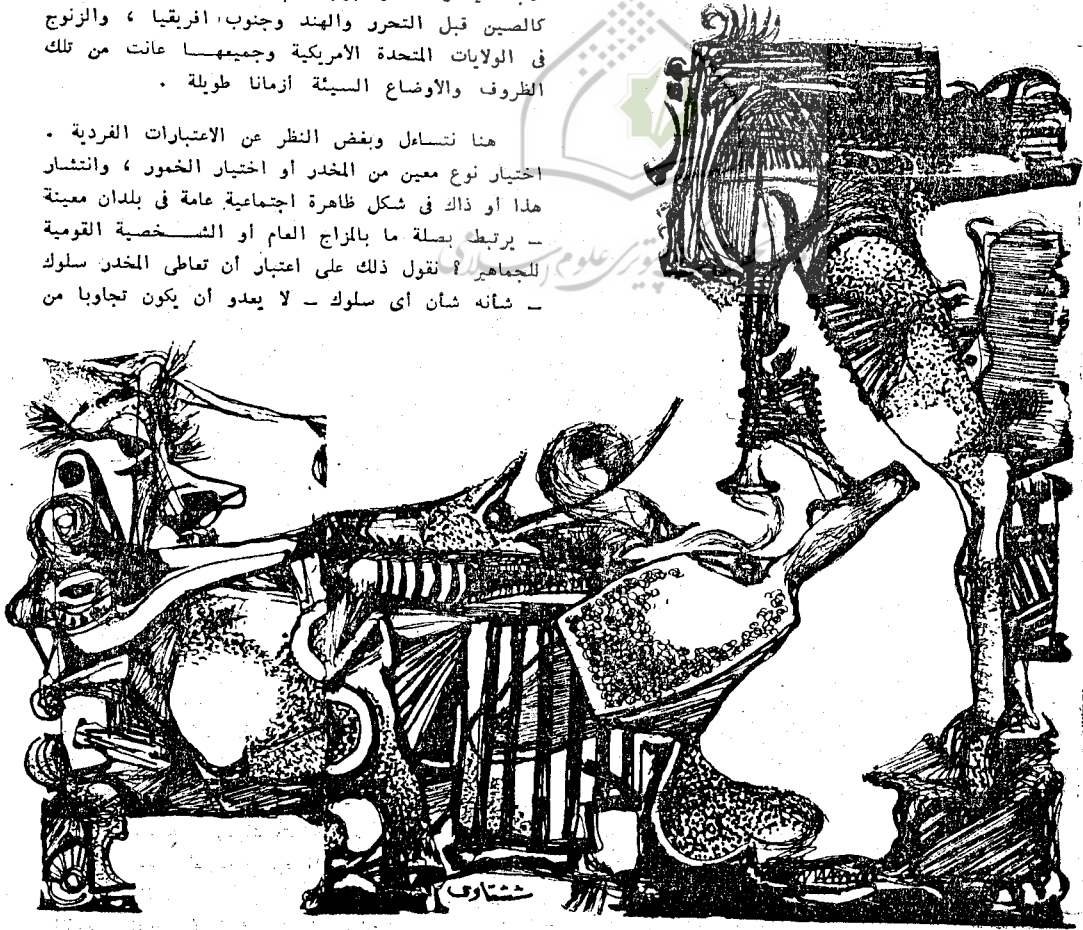 كالصين قبل التحرر والهند وجنوب افريقيا ، والزنوج
فى الولايات المتحدة الأمريكية وجميعهـــا عانت من تلك
الظروف والأوضاع السيئة أزمانا طويلة .
هنا نتساءل وبغض النظر عن الاعتبارات الفردية .
اختيار نوع معين من المخدر أو اختيار الخمور ، وانتشار
هذا أو ذاك فى شكل ظاهرة اجتماعية عامة فى بلدان معينة
ــ يرتبط بصلة ما بالمزاج العام أو الشـــخصية القومية
للجماهير ؟ نقول ذلك على اعتبار أن تعاطى المخدر سلوك
ــ شأنه شأن أى سلوك ــ لا يعدو أن يكون تجاوبا من
علوم اسلامی
ششتاوى